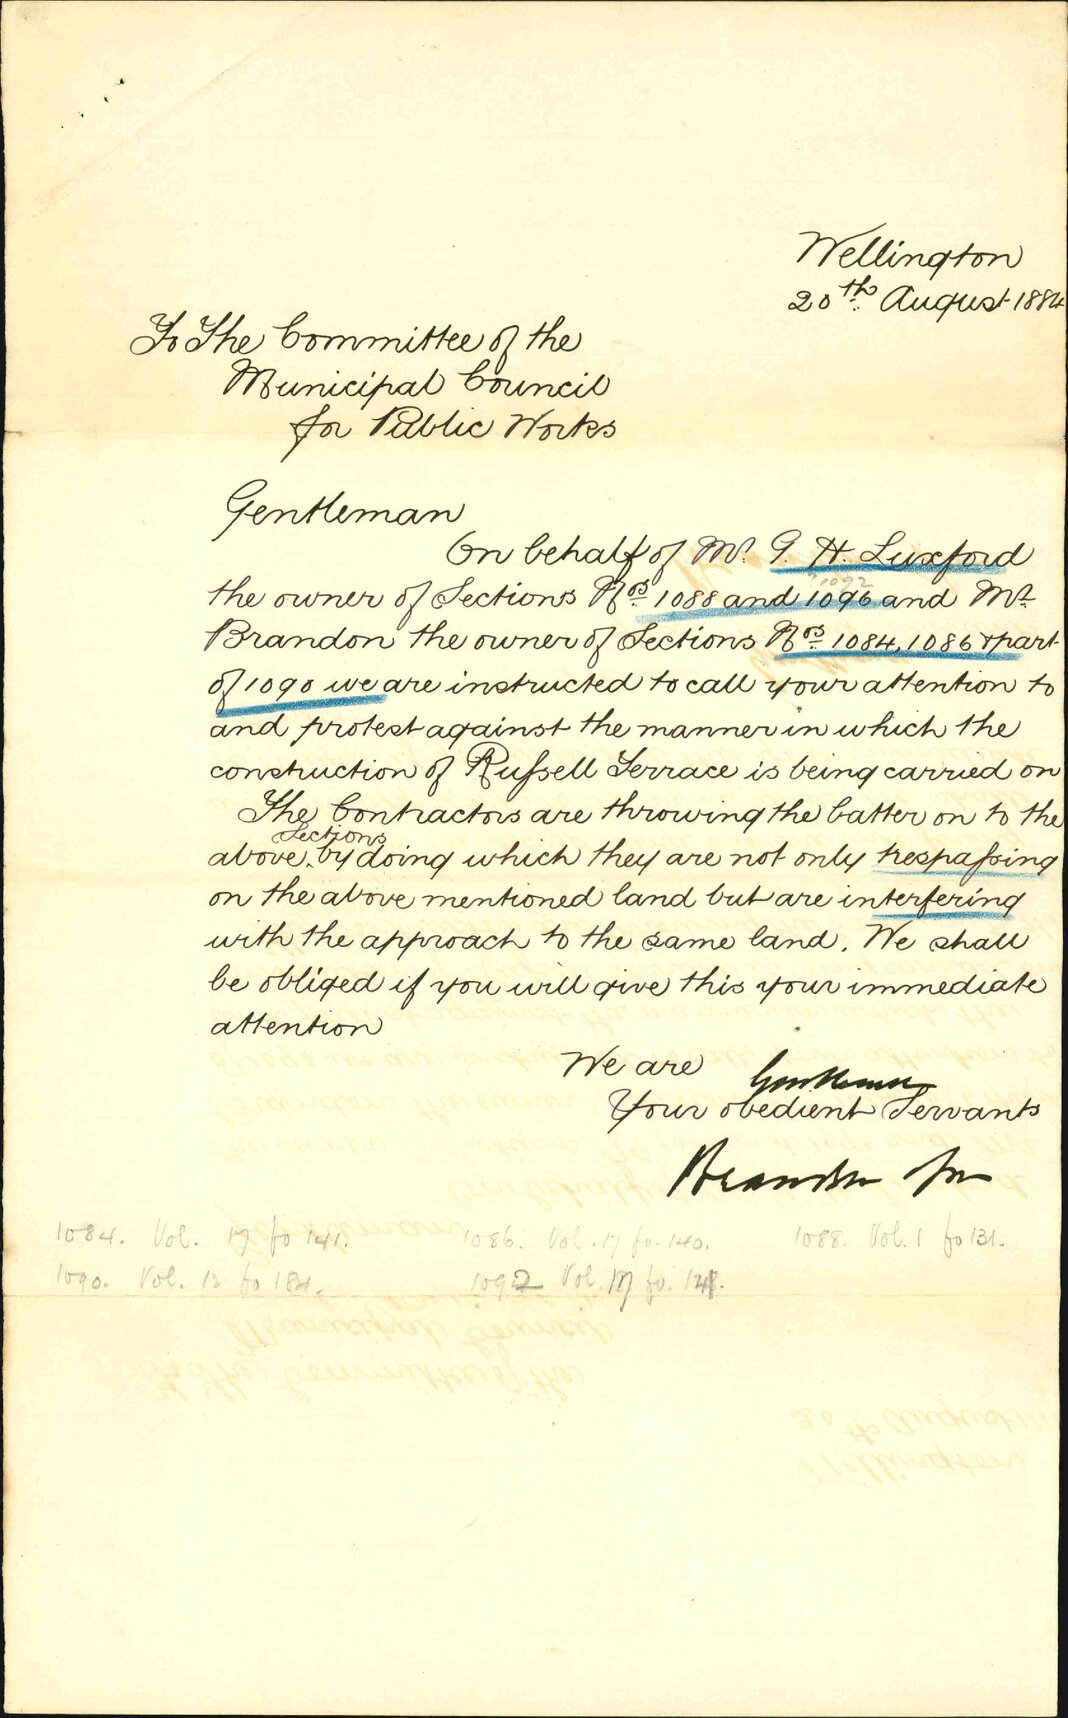 Wellington
20th August 1884
To The Committee of the
Municipal Council
for Public Works
Gentleman
On behalf of Mr. G. H. Luxford
1092
the owner of Sections Nos. 1088 and 1096 and Mr.
Brandon the owner of Sections Nos. 1084, 1086 & part
of 1090 we are instructed to call your attention to
and protest against the manner in which the
construction of Russell Terrace is being carried on
The Contractors are throwing the batter on to the
Sections
above by doing which they are not only trespassing
on the above mentioned land but are interfering
with the approach to the same land. We shall
be obliged if you will give this your immediate
attention
We are
Gentlemen
Your obedient Servants
Brandon Jnr
1084. Vol. 17 fo 141. 1086. Vol. 17 fo. 140. 1088. Vol. 1 fo 131.
1090. Vol. 12 fo 184. 1092 Vol. 17 fo.